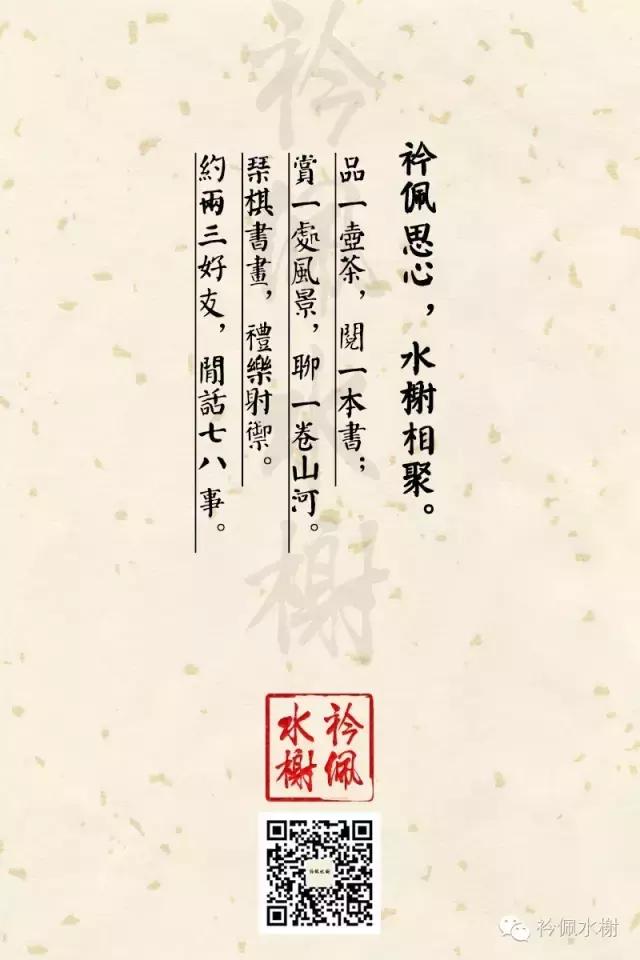 衿佩思心，水榭相聚。
品一壺茶，閱一本書；
賞一處風景，聊一卷山河。
琹棋書畫，禮樂射禦。
約兩三好友，閒話七八事。
衿佩水榭
衿佩
水榭
衿佩水榭
衿佩水榭